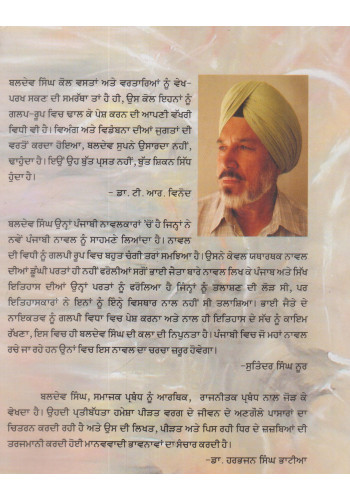 ਬਲਦੇਵ ਸਿੰਘ ਕੋਲ ਵਸਤਾਂ ਅਤੇ ਵਰਤਾਰਿਆਂ ਨੂੰ ਵੇਖ-
ਪਰਖ ਸਕਣ ਦੀ ਸਮਰੱਥਾ ਤਾਂ ਹੈ ਹੀ, ਉਸ ਕੋਲ ਇਹਨਾਂ ਨੂੰ
ਗਲਪ-ਰੂਪ ਵਿਚ ਢਾਲ ਕੇ ਪੇਸ਼ ਕਰਨ ਦੀ ਆਪਣੀ ਵੱਖਰੀ
ਵਿਧੀ ਵੀ ਹੈ। ਵਿਅੰਗ ਅਤੇ ਵਿਡੰਬਨਾ ਦੀਆਂ ਜੁਗਤਾਂ ਦੀ
ਵਰਤੋਂ ਕਰਦਾ ਹੋਇਆ, ਬਲਦੇਵ ਸੁਪਨੇ ਉਸਾਰਦਾ ਨਹੀਂ,
ਢਾਹੁੰਦਾ ਹੈ। ਇਉਂ ਉਹ ਬੁੱਤ ਪ੍ਰਸਤ ਨਹੀਂ, ਬੁੱਤ ਸ਼ਿਕਨ ਸਿੱਧ
ਹੁੰਦਾ ਹੈ।
- ਡਾ. ਟੀ. ਆਰ. ਵਿਨੋਦ
ਬਲਦੇਵ ਸਿੰਘ ਉਨ੍ਹਾਂ ਪੰਜਾਬੀ ਨਾਵਲਕਾਰਾਂ 'ਚੋਂ ਹੈ ਜਿਨ੍ਹਾਂ ਨੇ
ਨਵੇਂ ਪੰਜਾਬੀ ਨਾਵਲ ਨੂੰ ਸਾਹਮਣੇ ਲਿਆਂਦਾ ਹੈ। ਨਾਵਲ
ਦੀ ਵਿਧੀ ਨੂੰ ਗਲਪੀ ਰੂਪ ਵਿਚ ਬਹੁਤ ਚੰਗੀ ਤਰਾਂ ਸਮਝਿਆ ਹੈ। ਉਸਨੇ ਕੇਵਲ ਯਥਾਰਥਕ ਨਾਵਲ
ਦੀਆਂ ਡੂੰਘੀ ਪਰਤਾਂ ਹੀ ਨਹੀਂ ਫਰੋਲੀਆਂ ਸਗੋਂ ਭਾਈ ਜੈਤਾ ਬਾਰੇ ਨਾਵਲ ਲਿਖ ਕੇ ਪੰਜਾਬ ਅਤੇ ਸਿੱਖ
ਇਤਿਹਾਸ ਦੀਆਂ ਉਨ੍ਹਾਂ ਪਰਤਾਂ ਨੂੰ ਫਰੋਲਿਆ ਹੈ ਜਿਨ੍ਹਾਂ ਨੂੰ ਤਲਾਸ਼ਣ ਦੀ ਲੋੜ ਸੀ, ਪਰ
ਇਤਿਹਾਸਕਾਰਾਂ ਨੇ ਇਨਾਂ ਨੂੰ ਇੰਨ੍ਹੇ ਵਿਸਥਾਰ ਨਾਲ ਨਹੀਂ ਸੀ ਤਲਾਸ਼ਿਆ। ਭਾਈ ਜੈਤੇ ਦੇ
ਨਾਇਕਤਵ ਨੂੰ ਗਲਪੀ ਵਿਧਾ ਵਿਚ ਪੇਸ਼ ਕਰਨਾ ਅਤੇ ਨਾਲ ਹੀ ਇਤਿਹਾਸ ਦੇ ਸੱਚ ਨੂੰ ਕਾਇਮ
ਰੱਖਣਾ, ਇਸ ਵਿਚ ਹੀ ਬਲਦੇਵ ਸਿੰਘ ਦੀ ਕਲਾ ਦੀ ਨਿਪੁਨਤਾ ਹੈ। ਪੰਜਾਬੀ ਵਿਚ ਜੋ ਮਹਾਂ ਨਾਵਲ
ਰਚੇ ਜਾ ਰਹੇ ਹਨ ਉਨਾਂ ਵਿਚ ਇਸ ਨਾਵਲ ਦਾ ਚਰਚਾ ਜ਼ਰੂਰ ਹੋਵੇਗਾ।
-ਸੁਤਿੰਦਰ ਸਿੰਘ ਨੂਰ
ਬਲਦੇਵ ਸਿੰਘ, ਸਮਾਜਕ ਪ੍ਰਬੰਧ ਨੂੰ ਆਰਥਿਕ, ਰਾਜਨੀਤਕ ਪ੍ਰਬੰਧ ਨਾਲ ਜੋੜ ਕੇ
ਵੇਖਦਾ ਹੈ। ਉਹਦੀ ਪ੍ਰਤੀਬੱਧਤਾ ਹਮੇਸ਼ਾ ਪੀੜਤ ਵਰਗ ਦੇ ਜੀਵਨ ਦੇ ਅਣਗੌਲੇ ਪਾਸਾਰਾਂ ਦਾ
ਚਿਤਰਨ ਕਰਦੀ ਰਹੀ ਹੈ ਅਤੇ ਉਸ ਦੀ ਲਿਖਤ, ਪੀੜਤ ਅਤੇ ਪਿਸ ਰਹੀ ਧਿਰ ਦੇ ਜਜ਼ਬਿਆਂ ਦੀ
ਤਰਜਮਾਨੀ ਕਰਦੀ ਹੋਈ ਮਾਨਵਵਾਦੀ ਭਾਵਨਾਵਾਂ ਦਾ ਸੰਚਾਰ ਕਰਦੀ ਹੈ।
-ਡਾ. ਹਰਭਜਨ ਸਿੰਘ ਭਾਟੀਆ